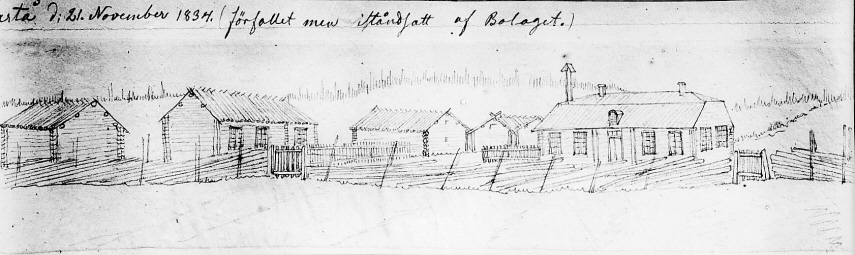 artå d: 21. November 1834. (förfallet men iståndsatt af Bolaget.)